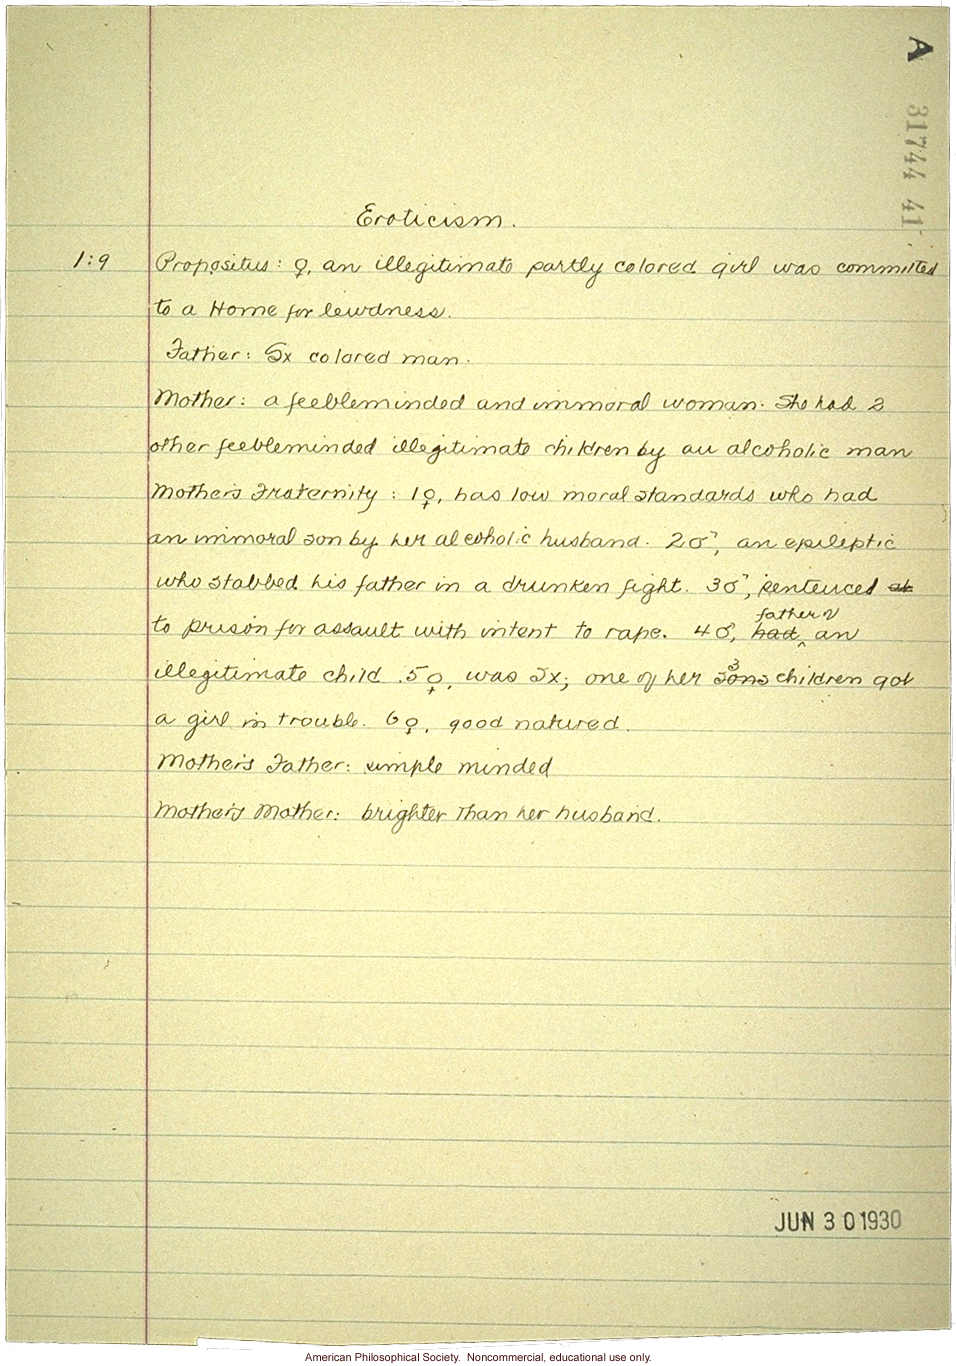 A 31744 41
Eroticism.
1:9 Propositus: ♀, an illegitimate partly colored girl was committed
to a Home for lewdness.
Father: Sx colored man.
Mother: a feebleminded and immoral woman. She had 2
other feebleminded illegitimate children by an alcoholic man
Mother's Fraternity: 1♀, has low moral standards who had
an immoral son by her alcoholic husband. 2♂, an epileptic
who stabbed his father in a drunken fight. 3♂, sentenced
to prison for assault with intent to rape. 4♂, had father of an
illegitimate child. 5♀, was Sx; one of her 3 sons children got
a girl in trouble. 6♀, good natured.
Mother's Father: simple minded
Mother's Mother: brighter than her husband.
JUN 30 1930
American Philosophical Society. Noncommercial, educational use only.